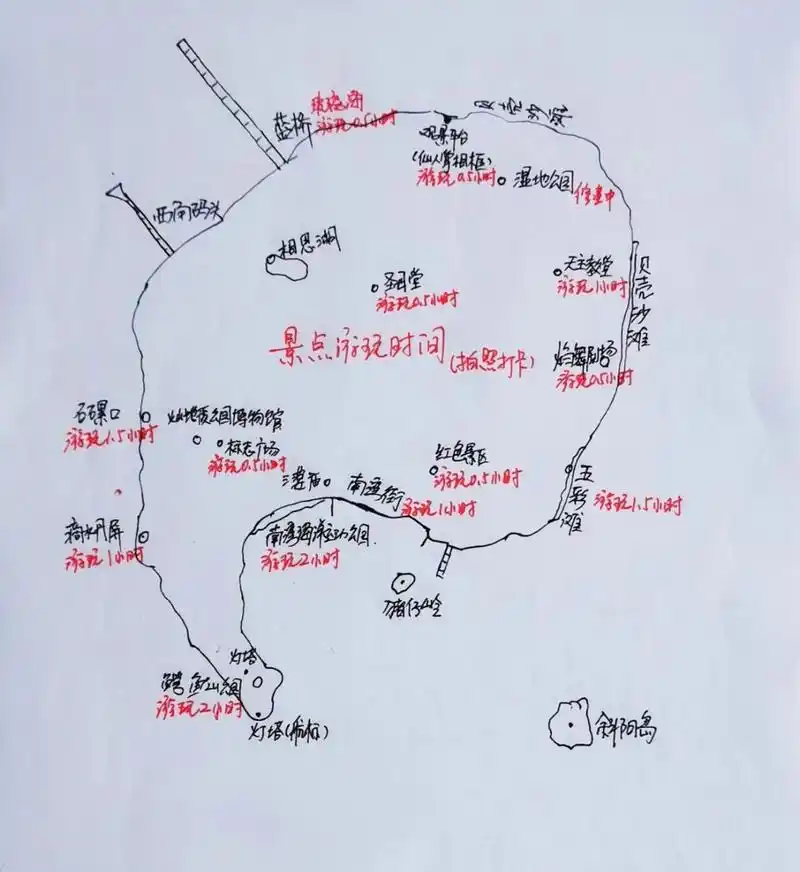 玻璃海
蓝桥
游玩0.5小时
观景平台
(仙人掌相框)
游玩0.5小时
湿地公园
修建中
西角码头
相思湖
圣母堂
游玩0.5小时
天主教堂
游玩1小时
贝壳沙滩
景点游玩时间
(拍照打卡)
游玩0.5小时
石螺口
游玩1.5小时
火山地质公园博物馆
标志广场
游玩0.5小时
红色景区
游玩0.5小时
南湾街
游玩1小时
五彩滩
游玩1.5小时
滴水丹屏
游玩1小时
南湾海洋运动公园
游玩2小时
猪仔岭
灯塔
鳄鱼山公园
游玩2小时
灯塔(航标)
斜阳岛